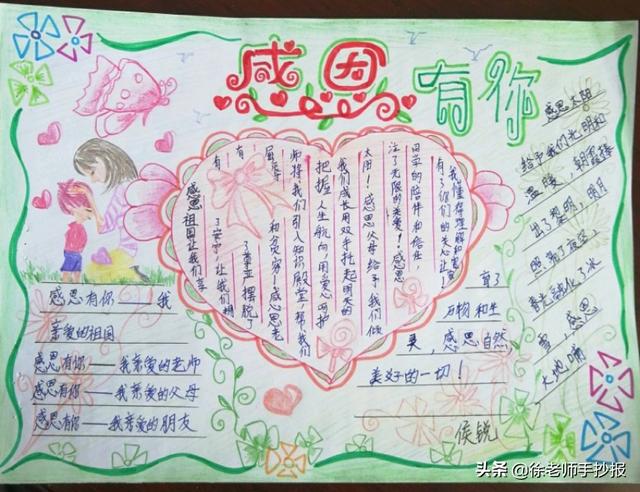 感恩
有你
感恩有你——我
亲爱的祖国
感恩有你——我亲爱的老师
感恩有你——我亲爱的父母
感恩有你——我亲爱的朋友
感恩祖国让我们享
有了安宁，让我们拥
有了尊严摆脱了
屈辱和贫穷！感恩老
师将我们引入知识殿堂，帮我们
把握人生航向，用爱心呵护
我们成长用双手托起明天的
太阳！感恩父母给予我们倾
注了无限的关爱！感恩
同学的陪伴和信任，
有了你们的关心让
我懂得理解和宽容
感恩太阳
给予我们光明和
温暖，朝霞捧
出了黎明，明月
照亮了夜空，
春光融化了冰
雪，感恩
大地哺
育了
万物和生
灵，感恩自然，
美好的一切！
侯锐
头条@徐老师手抄报